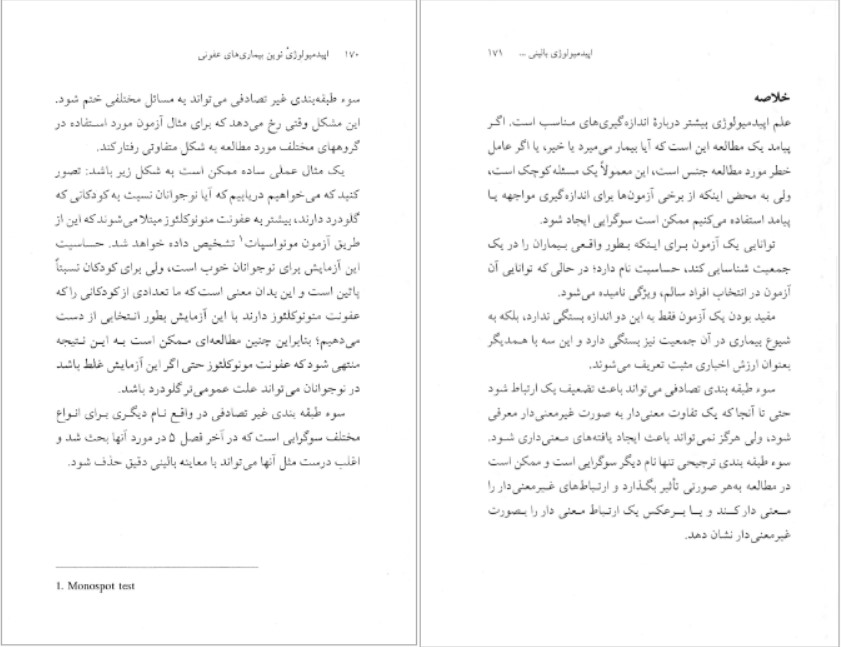 ۱۷۰ اپیدمیولوژیٔ نوین بیماری‌های عفونی
سوء طبقه‌بندی غیر تصادفی می‌تواند به مسائل مختلفی ختم شود.
این مشکل وقتی رخ می‌دهد که برای مثال آزمون مورد استفاده در
گروههای مختلف مورد مطالعه به شکل متفاوتی رفتار کند.
یک مثال عملی ساده ممکن است به شکل زیر باشد: تصور
کنید که می‌خواهیم دریابیم که آیا نوجوانان نسبت به کودکانی که
گلودرد دارند، بیشتر به عفونت منونوکلئوز مبتلا می‌شوند که این از
طریق آزمون مونواسپات۱ تشخیص داده خواهد شد. حساسیت
این آزمایش برای نوجوانان خوب است، ولی برای کودکان نسبتاً
پائین است و این بدان معنی است که ما تعدادی از کودکانی را که
عفونت منونوکلئوز دارند با این آزمایش بطور انتخابی از دست
می‌دهیم؛ بنابراین چنین مطالعه‌ای ممکن است به این نتیجه
منتهی شود که عفونت مونوکلئوز حتی اگر این آزمایش غلط باشد
در نوجوانان می‌تواند علت عمومی‌تر گلودرد باشد.
سوء طبقه بندی غیر تصادفی در واقع نام دیگری برای انواع
مختلف سوگرایی است که در آخر فصل ۵ در مورد آنها بحث شد و
اغلب درست مثل آنها می‌تواند با معاینه بالینی دقیق حذف شود.
1. Monospot test
اپیدمیولوژی بالینی ... ۱۷۱
خلاصه
علم اپیدمیولوژی بیشتر دربارهٔ اندازه‌گیری‌های مناسب است. اگر
پیامد یک مطالعه این است که آیا بیمار می‌میرد یا خیر، یا اگر عامل
خطر مورد مطالعه جنس است، این معمولاً یک مسئله کوچک است،
ولی به محض اینکه از برخی آزمون‌ها برای اندازه‌گیری مواجهه یا
پیامد استفاده می‌کنیم ممکن است سوگرایی ایجاد شود.
توانایی یک آزمون برای اینکه بطور واقعی بیماران را در یک
جمعیت شناسایی کند، حساسیت نام دارد؛ در حالی که توانایی آن
آزمون در انتخاب افراد سالم، ویژگی نامیده می‌شود.
مفید بودن یک آزمون فقط به این دو اندازه بستگی ندارد، بلکه به
شیوع بیماری در آن جمعیت نیز بستگی دارد و این سه با همدیگر
بعنوان ارزش اخباری مثبت تعریف می‌شوند.
سوء طبقه بندی تصادفی می‌تواند باعث تضعیف یک ارتباط شود
حتی تا آنجا که یک تفاوت معنی‌دار به صورت غیرمعنی‌دار معرفی
شود، ولی هرگز نمی‌تواند باعث ایجاد یافته‌های معنی‌داری شود.
سوء طبقه بندی ترجیحی تنها نام دیگر سوگرایی است و ممکن است
در مطالعه به‌هر صورتی تأثیر بگذارد و ارتباط‌های غیرمعنی‌دار را
معنی دار کند و یا برعکس یک ارتباط معنی دار را بصورت
غیرمعنی‌دار نشان دهد.